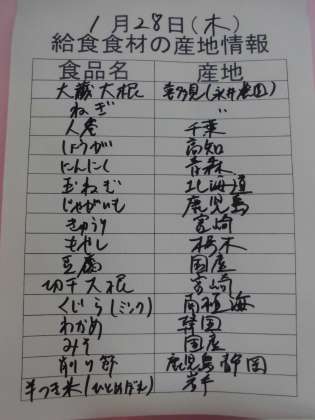 1月28日(木)
給食食材の産地情報
食品名 産地
大蔵大根 喜多見(永井農園)
ねぎ 〃
人参 千葉
しょうが 高知
にんにく 青森
玉ねぎ 北海道
じゃがいも 鹿児島
きゅうり 宮崎
もやし 栃木
豆腐 国産
切干大根 宮崎
くじら(ミンク) 南極海
わかめ 韓国
みそ 国産
削り節 鹿児島 静岡
半つき米(ひとめぼれ) 岩手